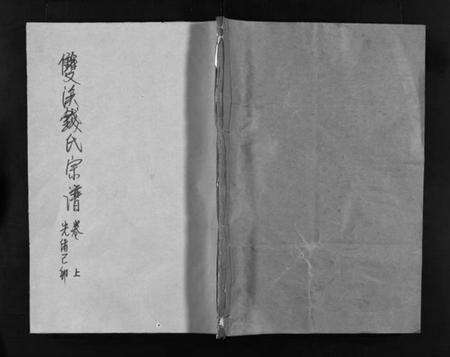 雙溪錢氏宗譜
卷上
光緒乙卯